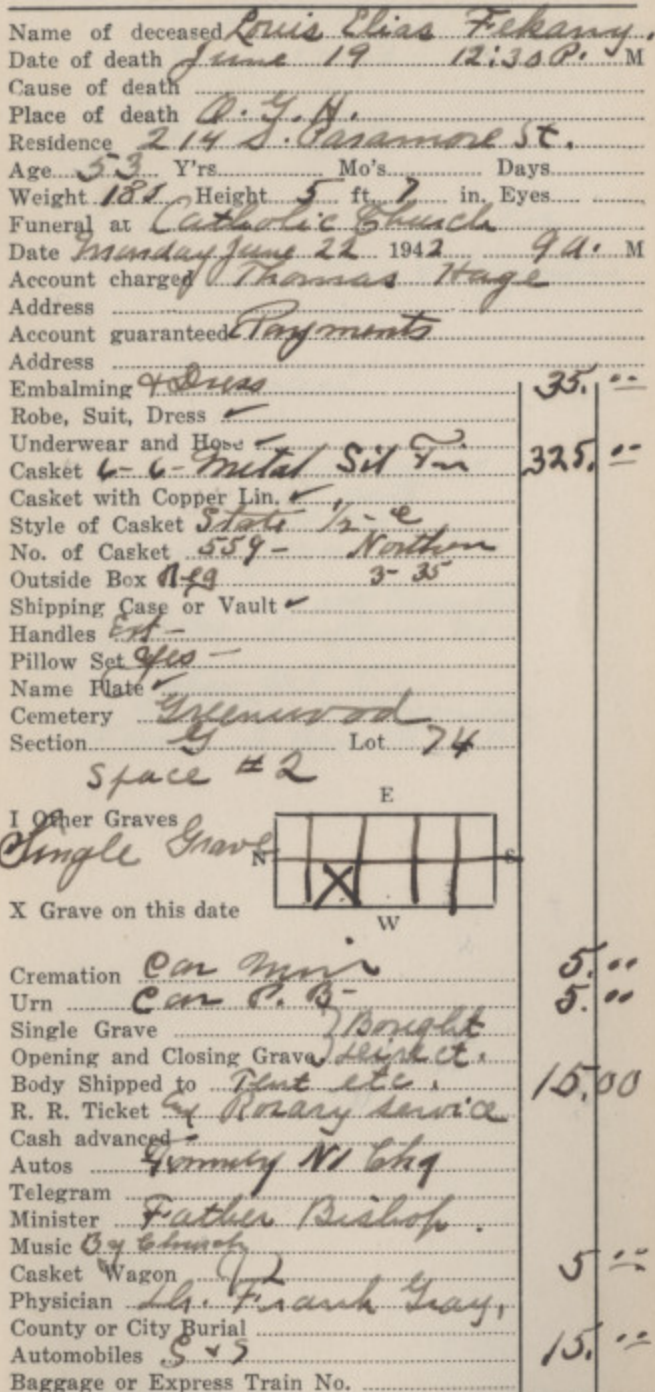 Name of deceased Louis Elias Fekany.
Date of death June 19 12:30 P. M
Cause of death
Place of death O. G. H.
Residence 214 S. Paramore St.
Age 53 Y'rs. Mo's. Days
Weight 185 Height 5 ft. 7 in. Eyes
Funeral at Catholic Church
Date Monday June 22 1942 9 a. M
Account charged Thomas Hage
Address
Account guaranteed Payments
Address
Embalming & Dress 35.00
Robe, Suit, Dress ✓
Underwear and Hose ✓
Casket 6-6- Metal Sil 325.00
Casket with Copper Lin. ✓
Style of Casket State
No. of Casket 559 - Northern
Outside Box Reg 3-35
Shipping Case or Vault ✓
Handles Ext -
Pillow Set Yes -
Name Plate ✓
Cemetery Greenwood
Section G Lot 74
Space #2
E
I Other Graves
Single Grave N S
X
X Grave on this date
W
Cremation Car 5.00
Urn Car P. B- 5.00
Single Grave } Bought
Opening and Closing Grave } direct.
Body Shipped to Tent etc. 15.00
R. R. Ticket Rosary service
Cash advanced -
Autos No Chg
Telegram
Minister Father Bishop.
Music By Church
Casket Wagon 5.00
Physician Dr. Frank Gray,
County or City Burial
Automobiles S & S 15.00
Baggage or Express Train No.